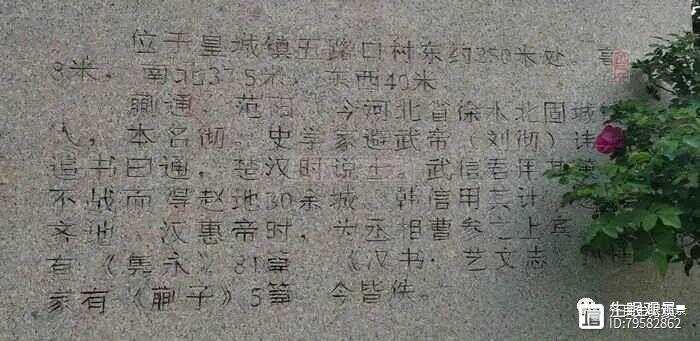 位于皇城镇五路口村东约250米处,高
8米,南北37.5米,东西40米
蒯通,范阳(今河北省徐水北固城
人,本名彻。史学家避武帝(刘彻)讳
追书曰通,楚汉时说士。武信君用其
不战而得赵地30余城。韩信用其计
齐地。汉惠帝时,为丞相曹参之上宾
有《隽永》81篇。《汉书·艺文志》
家有《蒯子》5篇,今皆佚。
ID:79582862